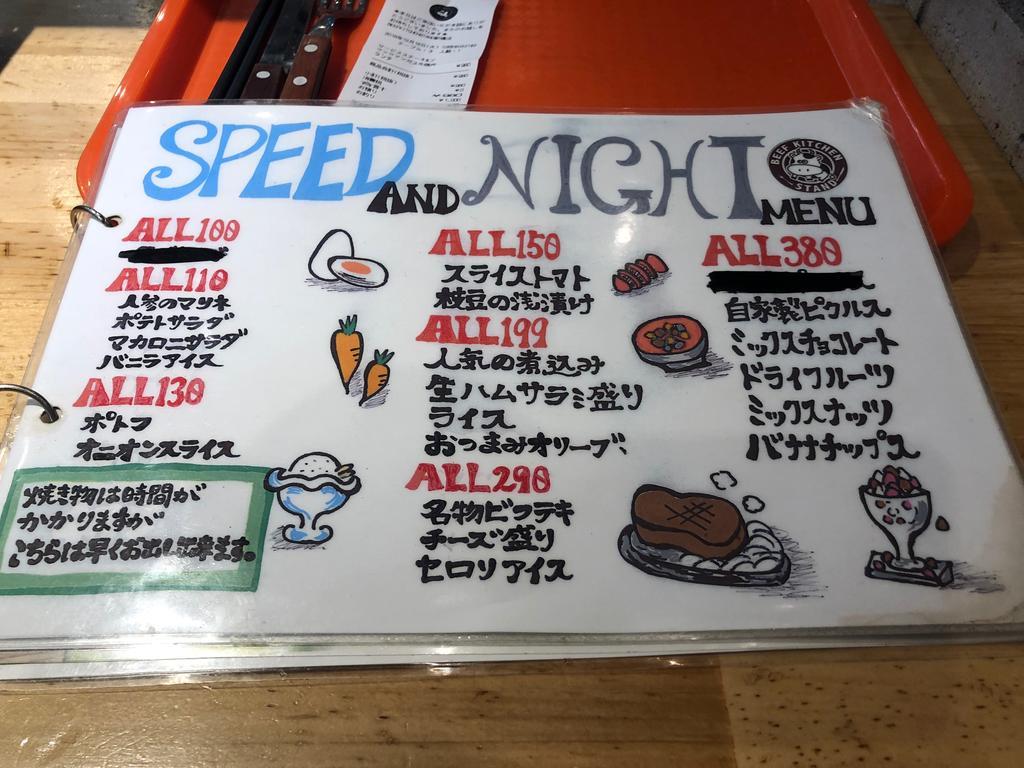 SPEED AND NIGHT MENU
BEEF KITCHEN STAND
ALL100
ALL110
人参のマリネ
ポテトサラダ
マカロニサラダ
バニラアイス
ALL130
ポトフ
オニオンスライス
焼き物は時間が
かかりますが
こちらは早くお出し出来ます。
ALL150
スライストマト
枝豆の浅漬け
ALL199
人気の煮込み
生ハムサラミ盛り
ライス
おつまみオリーブ
ALL290
名物ビフテキ
チーズ盛り
セロリアイス
ALL380
自家製ピクルス
ミックスチョコレート
ドライフルーツ
ミックスナッツ
バナナチップス